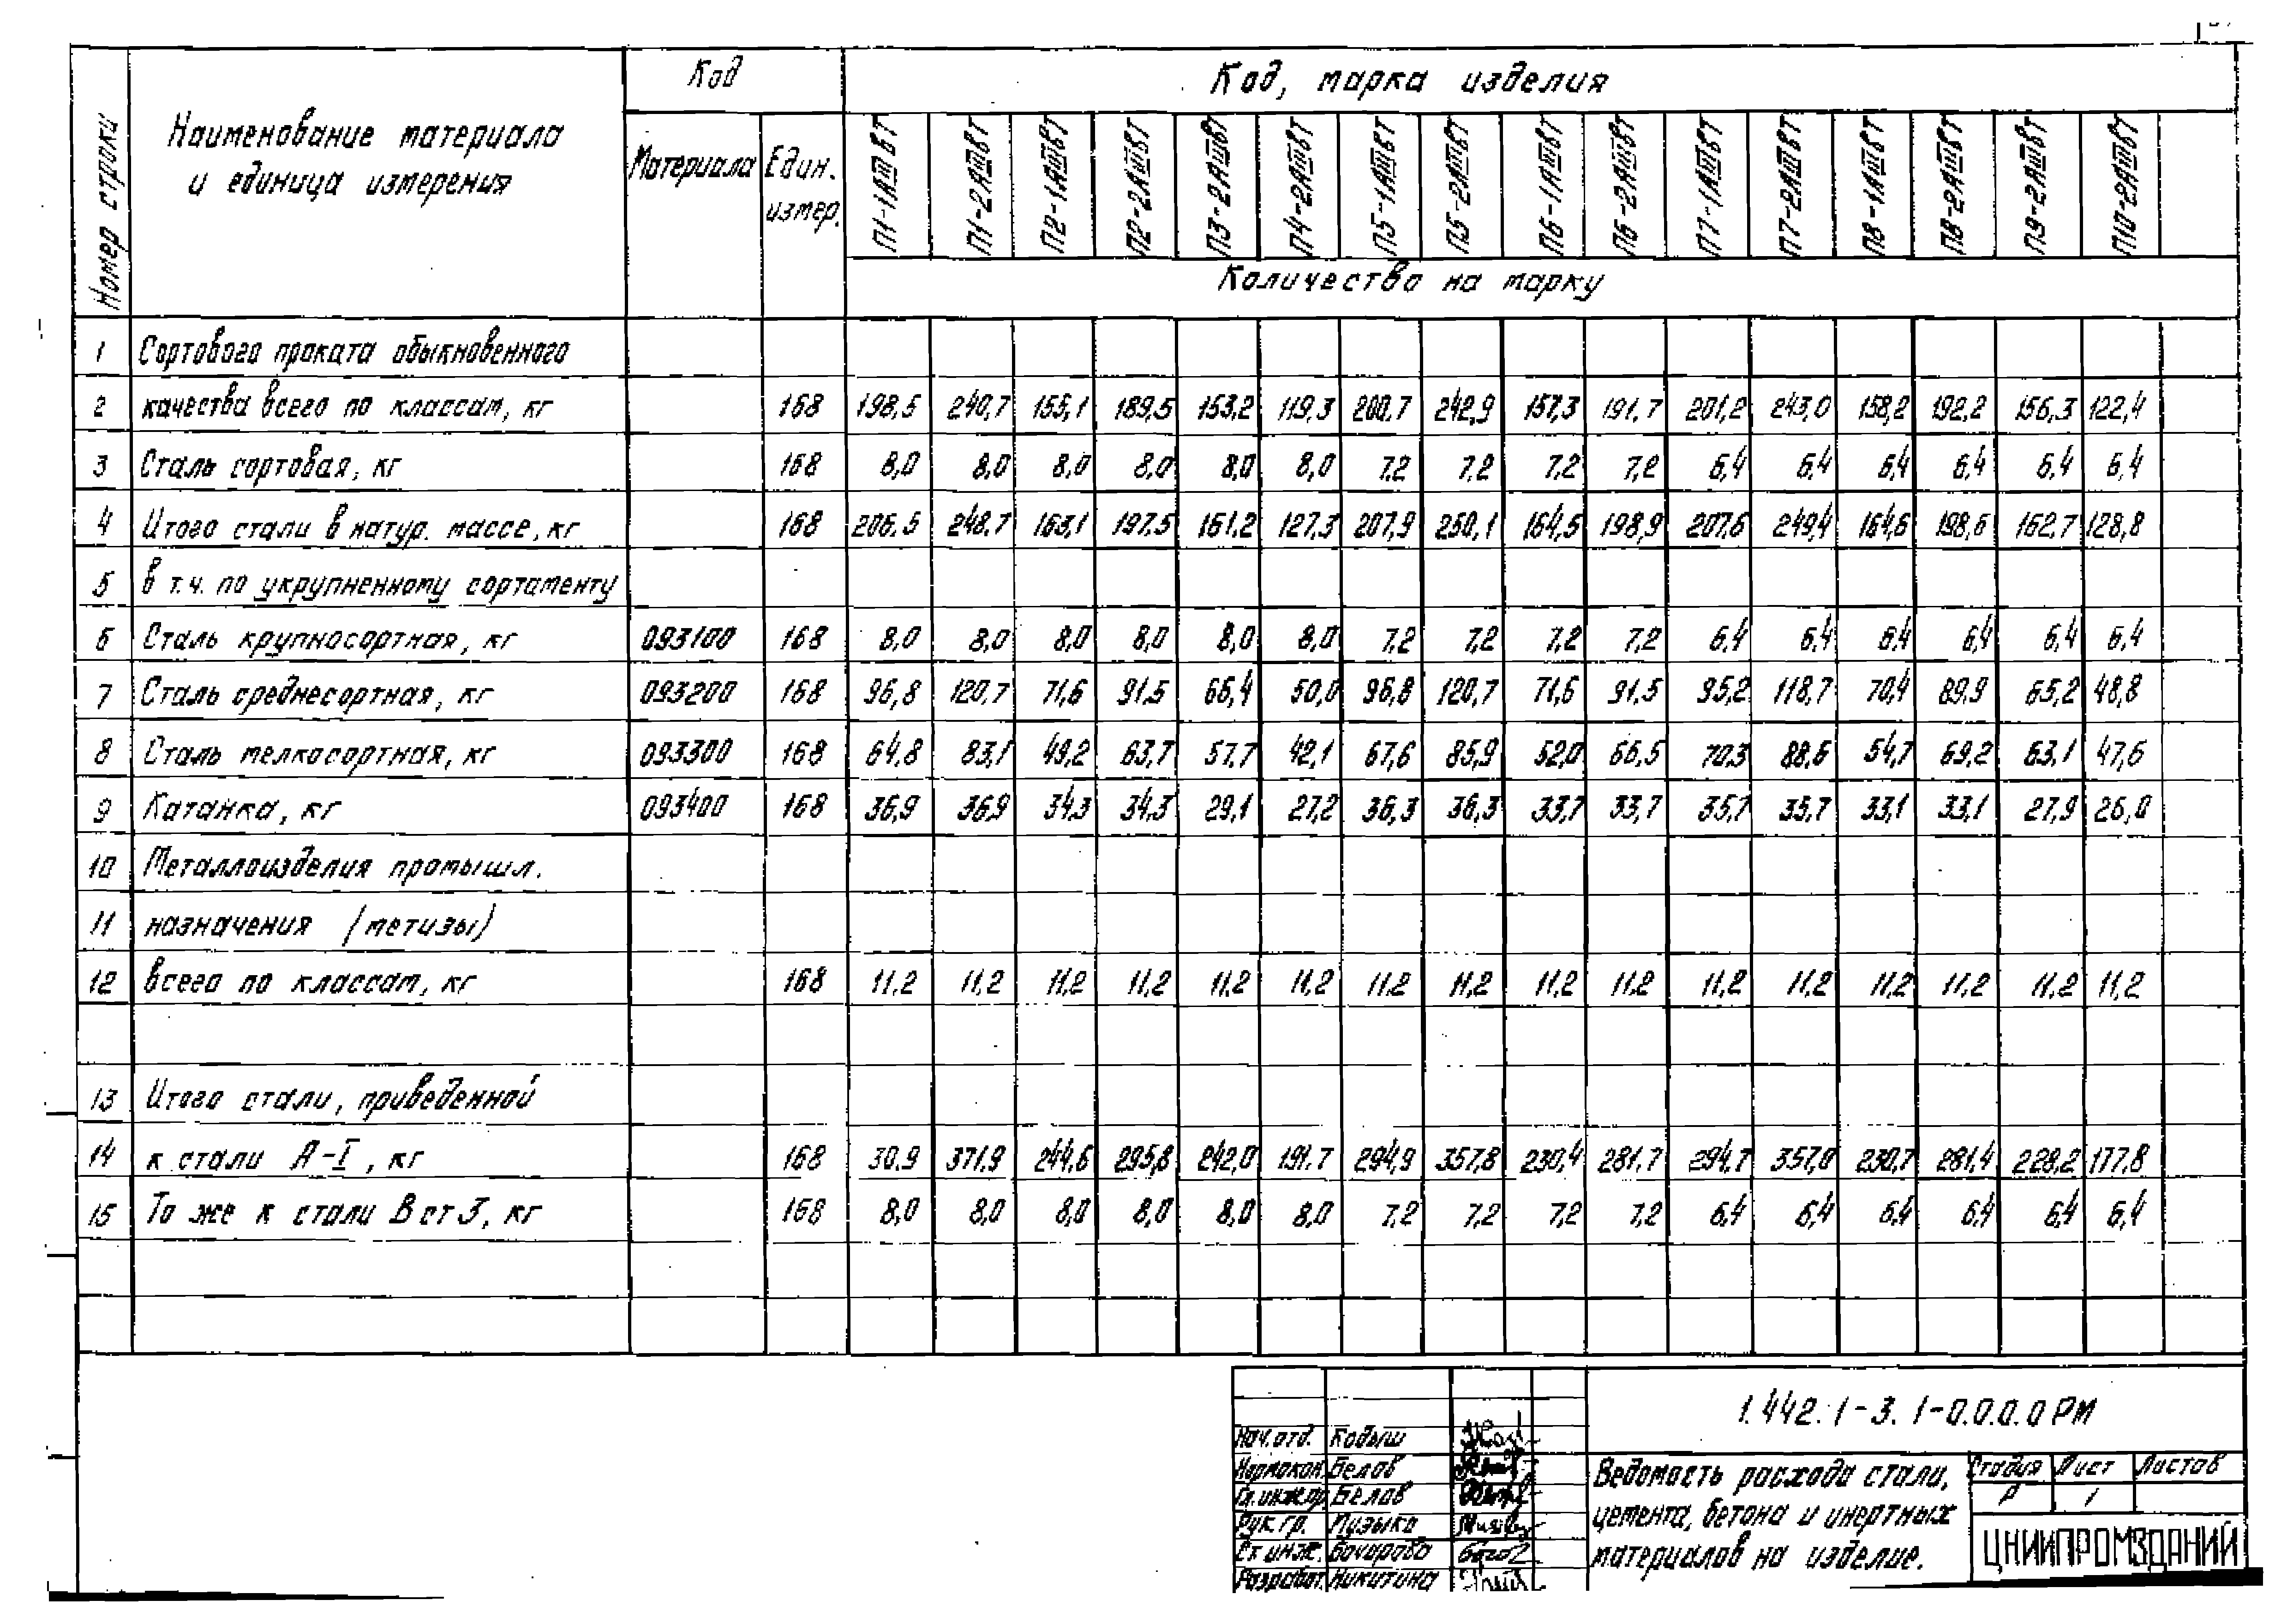 Код
Код, марка изделия
Номер строки
Наименование материала
и единица измерения
Материала
Един.
измер.
П1-1АШвТ П1-2АШвТ П2-1АШвТ П2-2АШвТ П3-2АШвТ П4-2АШвТ П5-1АШвТ П5-2АШвТ П6-1АШвТ П6-2АШвТ П7-1АШвТ П7-2АШвТ П8-1АШвТ П8-2АШвТ П9-2АШвТ П10-2АШвТ
Количество на марку
1 Сортового проката обыкновенного
2 качества всего по классам, кг 168 198,5 240,7 155,1 189,5 153,2 119,3 200,7 242,9 157,3 191,7 201,2 243,0 158,2 192,2 156,3 122,4
3 Сталь сортовая, кг 168 8,0 8,0 8,0 8,0 8,0 8,0 7,2 7,2 7,2 7,2 6,4 6,4 6,4 6,4 6,4 6,4
4 Итого стали в натур. массе, кг 168 206,5 248,7 163,1 197,5 161,2 127,3 207,9 250,1 164,5 198,9 207,6 249,4 164,6 198,6 162,7 128,8
5 в т.ч. по укрупненному сортаменту
6 Сталь крупносортная, кг 093100 168 8,0 8,0 8,0 8,0 8,0 8,0 7,2 7,2 7,2 7,2 6,4 6,4 6,4 6,4 6,4 6,4
7 Сталь среднесортная, кг 093200 168 96,8 120,7 71,6 91,5 66,4 50,0 96,8 120,7 71,6 91,5 95,2 118,7 70,4 89,9 65,2 48,8
8 Сталь мелкосортная, кг 093300 168 64,8 83,1 49,2 63,7 57,7 42,1 67,6 85,9 52,0 66,5 70,3 88,6 54,7 69,2 63,1 47,6
9 Катанка, кг 093400 168 36,9 36,9 34,3 34,3 29,1 27,2 36,3 36,3 33,7 33,7 35,7 35,7 33,1 33,1 27,9 26,0
10 Металлоизделия промышл.
11 назначения (метизы)
12 всего по классам, кг 168 11,2 11,2 11,2 11,2 11,2 11,2 11,2 11,2 11,2 11,2 11,2 11,2 11,2 11,2 11,2 11,2
13 Итого стали, приведенной
14 к стали А-I, кг 168 30,9 371,9 244,6 295,8 242,0 191,7 294,9 357,8 230,4 281,7 294,7 357,0 230,7 281,4 228,2 177,8
15 То же к стали ВСт3, кг 168 8,0 8,0 8,0 8,0 8,0 8,0 7,2 7,2 7,2 7,2 6,4 6,4 6,4 6,4 6,4 6,4
1.442.1-3.1-0.0.0.0РМ
Нач.отд. Кодыш
Нормокон. Белов
Гл.инж.пр. Белов
Рук.гр. Музыка
Ст.инж. Бочарова
Разработ. Никитина
Ведомость расхода стали,
цемента, бетона и инертных
материалов на изделие.
Стадия Лист Листов
Р 1
ЦНИИПРОМЗДАНИЙ